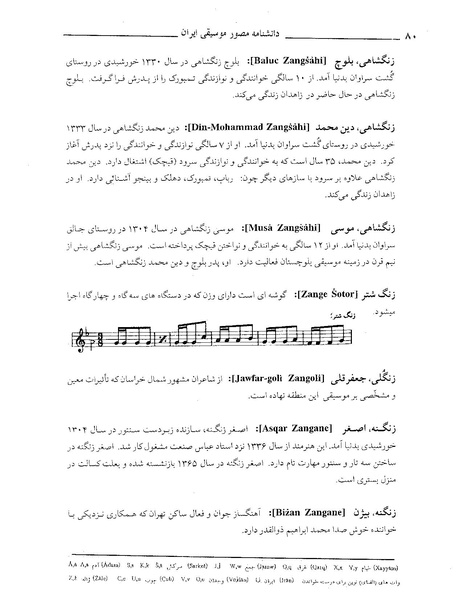 ۸۰ دانشنامه مصور موسیقی ایران
زنگشاهی، بلوچ [Baluc Zangšâhi]: بلوچ زنگشاهی در سال ۱۳۳۰ خورشیدی در روستای
گشت سراوان بدنیا آمد. از ۱۰ سالگی خوانندگی و نوازندگی تمبورک را از پدرش فرا گرفت. بلوچ
زنگشاهی در حال حاضر در زاهدان زندگی می‌کند.
زنگشاهی، دین محمد [Din-Mohammad Zangšâhi]: دین محمد زنگشاهی در سال ۱۳۳۳
خورشیدی در روستای گشت سراوان بدنیا آمد. او از ۷ سالگی نوازندگی و خوانندگی را نزد پدرش آغاز
کرد. دین محمد، ۳۵ سال است که به خوانندگی و نوازندگی سرود (قیچک) اشتغال دارد. دین محمد
زنگشاهی علاوه بر سرود با سازهای دیگر چون: رباب، تمبورک، دهلک و بینجو آشنائی دارد. او در
زاهدان زندگی می‌کند.
زنگشاهی، موسی [Musâ Zangšâhi]: موسی زنگشاهی در سال ۱۳۰۴ در روستای جالق
سراوان بدنیا آمد. او از ۱۲ سالگی به خوانندگی و نواختن قیچک پرداخته است. موسی زنگشاهی بیش از
نیم قرن در زمینه موسیقی بلوچستان فعالیت دارد. او، پدر بلوچ و دین محمد زنگشاهی است.
زنگ شتر [Zange Šotor]: گوشه ای است دارای وزن که در دستگاه های سه گاه و چهارگاه اجرا
میشود.
زنگ شتر؛
زنگلی، جعفرقلی [Jawfar-goli Zangoli]: از شاعران مشهور شمال خراسان که تأثیرات معین
و مشخصی بر موسیقی این منطقه نهاده است.
زنگنه، اصغر [Asqar Zangane]: اصغر زنگنه، سازنده زبردست سنتور در سال ۱۳۰۴
خورشیدی بدنیا آمد. این هنرمند از سال ۱۳۳۶ نزد استاد عباس صنعت مشغول کار شد. اصغر زنگنه در
ساختن سه تار و سنتور مهارت تام دارد. اصغر زنگنه در سال ۱۳۶۵ بازنشسته شده و بعلت کسالت در
منزل بستری است.
زنگنه، بیژن [Bižan Zangane]: آهنگساز جوان و فعال ساکن تهران که همکاری نزدیکی با
خواننده خوش صدا محمد ابراهیم ذوالقدر دارد.